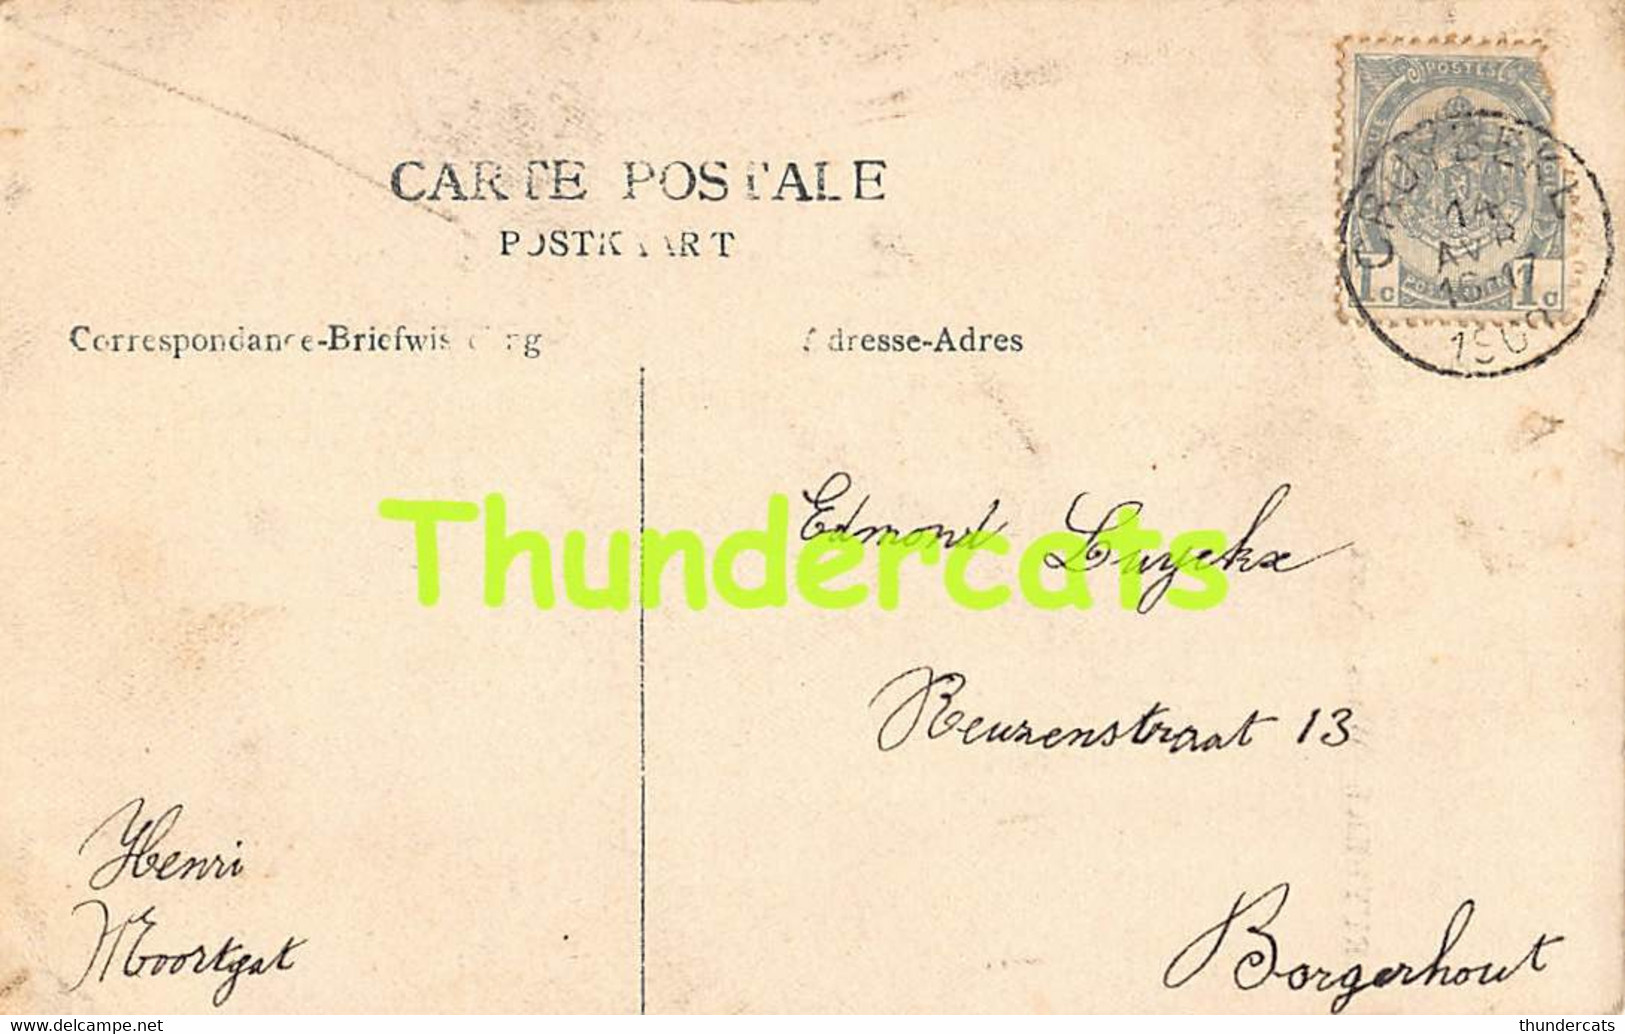 CARTE POSTALE
POSTKAART
Correspondance-Briefwisseling
Adresse-Adres
POSTES
1c 1c
CRUYBEKE
14
AVR
16-17
Thundercats
Edmond Luyckx
Reuzenstraat 13
Borgerhout
Henri
Moortgat
delcampe.net
thundercats